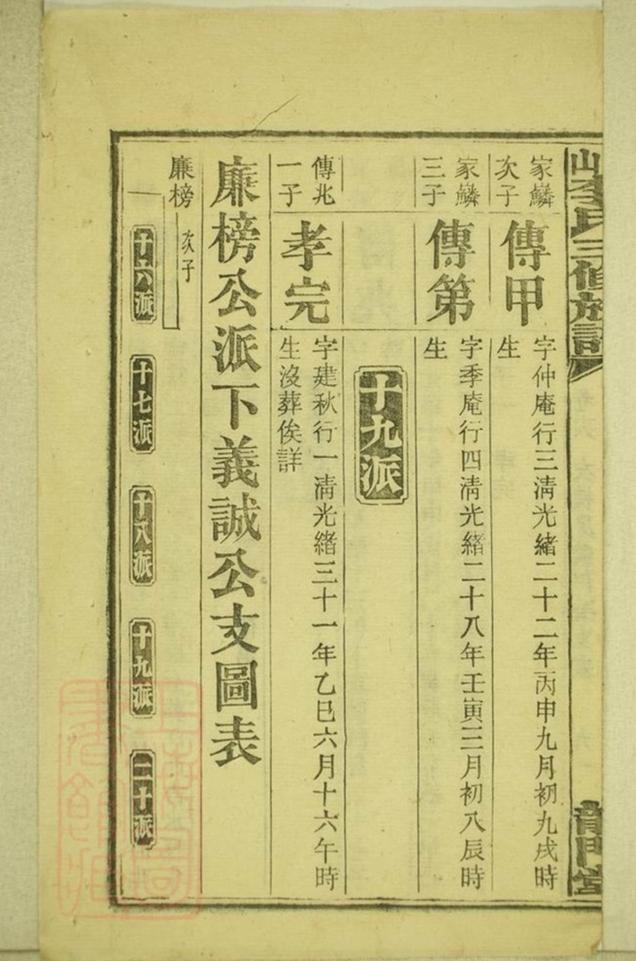 山李氏三修族譜
龍門堂
家鱗次子
傳甲
字仲庵行三清光緒二十二年丙申九月初九戌時
生
家鱗三子
傳第
字季庵行四清光緒二十八年壬寅三月初八辰時
生
十九派
傳兆一子
孝完
字建秋行一清光緒三十一年乙巳六月十六午時
生沒葬俟詳
廉榜公派下義誠公支圖表
廉榜次子
十六派
十七派
十八派
十九派
二十派